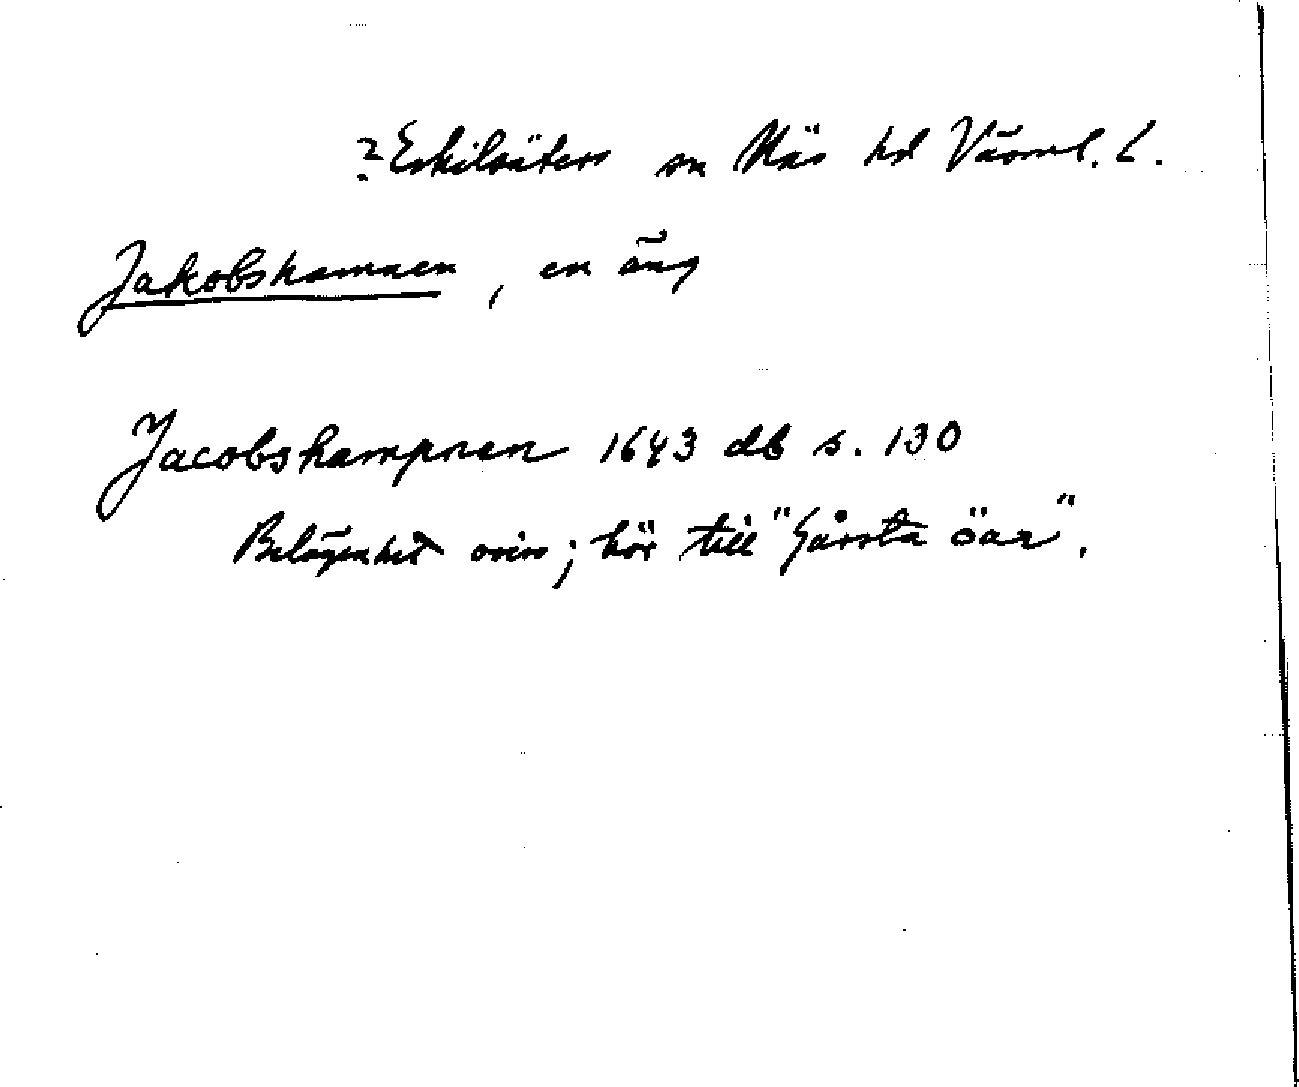 ? Eskilsäters sn Näs hd Värml. L.
Jakobshamnen, en äng
Jacobshampnen 1643 db s. 130
Belägenhet oviss; hör till "Gårsta öar".